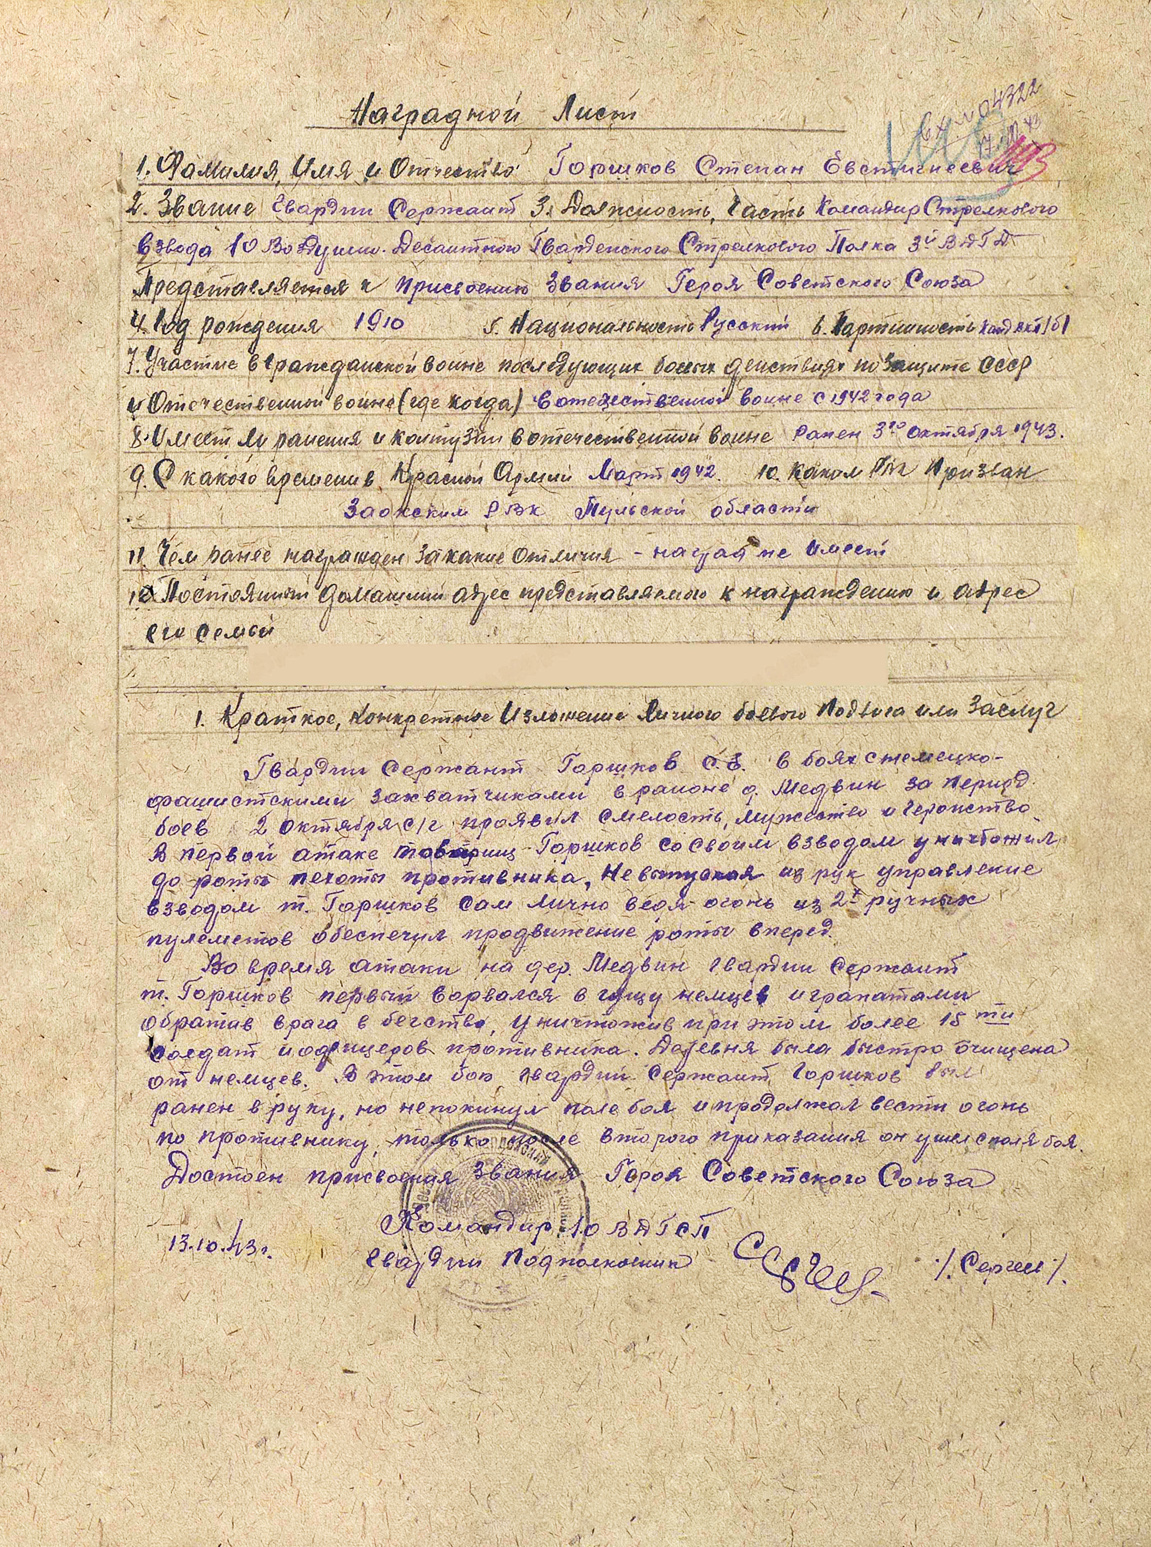 Наградной Лист
1. Фамилия, Имя и Отчество Горшков Степан Евстигнеевич
2. Звание Гвардии Сержант 3. Должность, Часть Командир Стрелкового
взвода 10 Воздушно-Десантного Гвардейского Стрелкового Полка 3й ВДГД
Представляется к присвоению Звания Героя Советского Союза
4. Год рождения 1910 5. Национальность Русский 6. Партийность канд ВКП/б/
7. Участие в гражданской войне последующих боевых действиях по защите СССР
и Отечественной войне (где когда) в отечественной войне с 1942 года
8. Имеет ли ранения и контузии в отечественной войне ранен 3го октября 1943.
9. С какого времени в Красной Армии Март 1942. 10. каком РВК Призван
Заокским РВК Тульской области
11. Чем ранее награжден за какие отличия - наград не имеет
12. Постоянный домашний адрес представляемого к награждению и адрес
его семьи
1. Краткое, конкретное Изложение Личного боевого Подвига или Заслуг
Гвардии Сержант Горшков С.Е. в боях с немецко-
фашистскими захватчиками в районе д. Медвин за период
боев 2 октября с/г проявил смелость, мужество и геройство.
В первой атаке товарищ Горшков со своим взводом уничтожил
до роты пехоты противника, Не выпуская из рук управление
взводом т. Горшков сам лично ведя огонь из 2х ручных
пулеметов обеспечил продвижение роты вперед.
Во время атаки на дер. Медвин гвардии Сержант
т. Горшков первый ворвался в гущу немцев и гранатами
обратив врага в бегство, уничтожив при этом более 15ти
солдат и офицеров противника. Деревня была быстро очищена
от немцев. В этом бою гвардии Сержант Горшков был
ранен в руку, но не покинул поле боя и продолжал вести огонь
по противнику, только после второго приказания он ушел с поля боя.
Достоен присвоения Звания Героя Советского Союза
Командир 10 ВДГСП
13.10.43г. Гвардии Подполковник /Сергеев/.